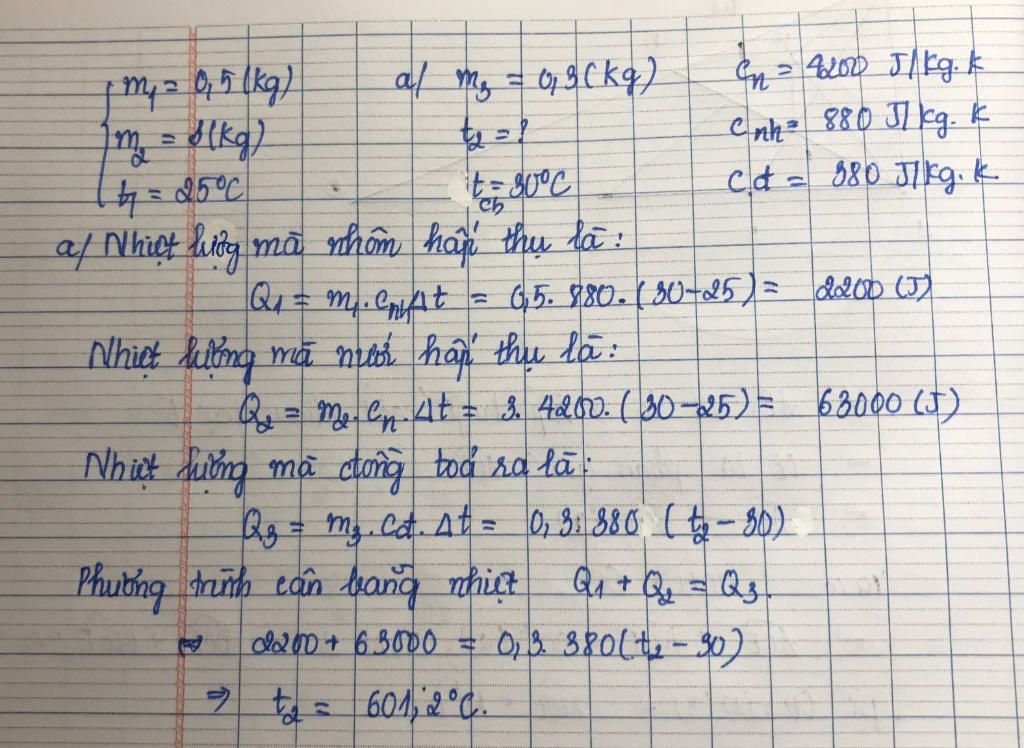 m₁ = 0,5 (kg) a/ m₃ = 0,3 (kg) cₙ = 4200 J/kg.k
m₂ = 3 (kg) t₂ = ? c nh = 880 J/kg.k
t₁ = 25°C t cb = 30°C c đ = 380 J/kg.k
a/ Nhiệt lượng mà nhôm hấp thụ là:
Q₁ = m₁.c nh.Δt = 0,5.880.(30-25) = 2200 (J)
Nhiệt lượng mà nước hấp thụ là:
Q₂ = m₂.cₙ.Δt = 3.4200.(30-25) = 63000 (J)
Nhiệt lượng mà đồng toả ra là:
Q₃ = m₃.cđ.Δt = 0,3.380 (t₂ - 30)
Phương trình cân bằng nhiệt Q₁ + Q₂ = Q₃.
⇔ 2200 + 63000 = 0,3.380(t₂ - 30)
⇒ t₂ = 601,2°C.